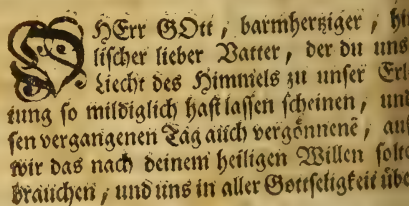 O HErr GOtt, barmhertziger, hi
lischer lieber Vatter, der du uns
Liecht des Himmels zu unser Erl
tung so mildiglich hast lassen scheinen, und
sen vergangenen Tag auch vergönnenẽ, auf
wir das nach deinem heiligen Willen solte
brauchen, und uns in aller Gottseligkeit übe